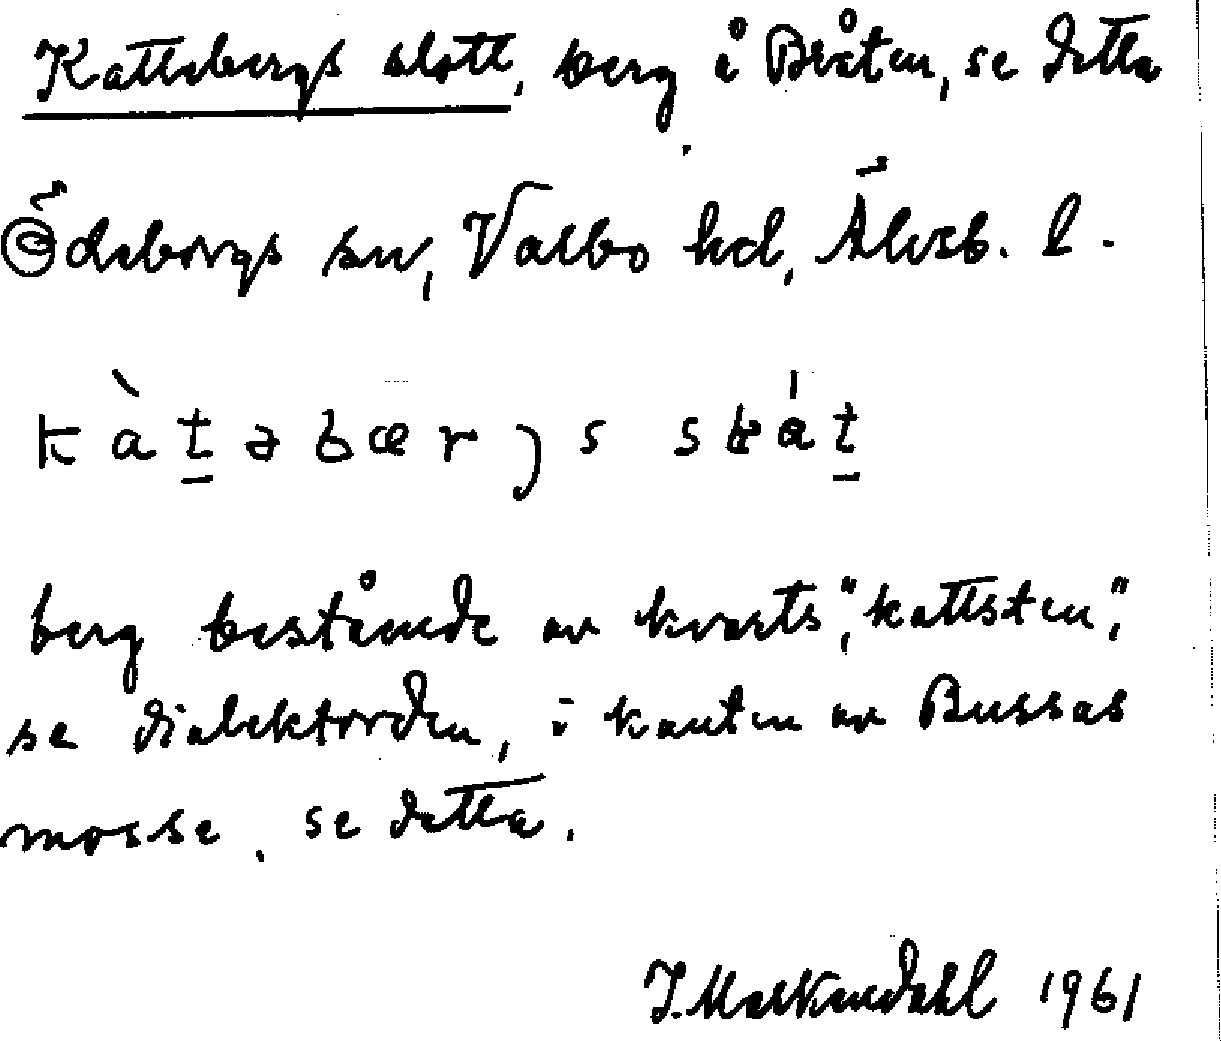 Kattebergs slott, berg i Bråten, se detta
Ödeborgs sn, Valbo hd, Älvsb. l.
kàt̲əbærjs slát̲
berg bestående av kvarts, "kattsten",
se dialektorden, i kanten av Bussas
mosse, se detta.
J. Markendahl 1961